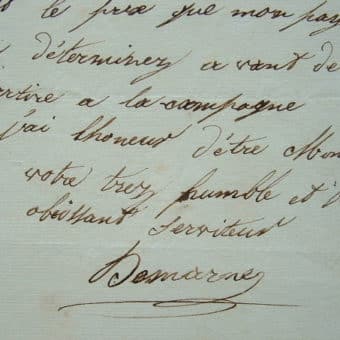 le prix que mon pay
déterminez a vant de
rtire a la campagne
j'ai lhoneur d'étre Mon
votre trez humble et
obéissant serviteur
Demarne